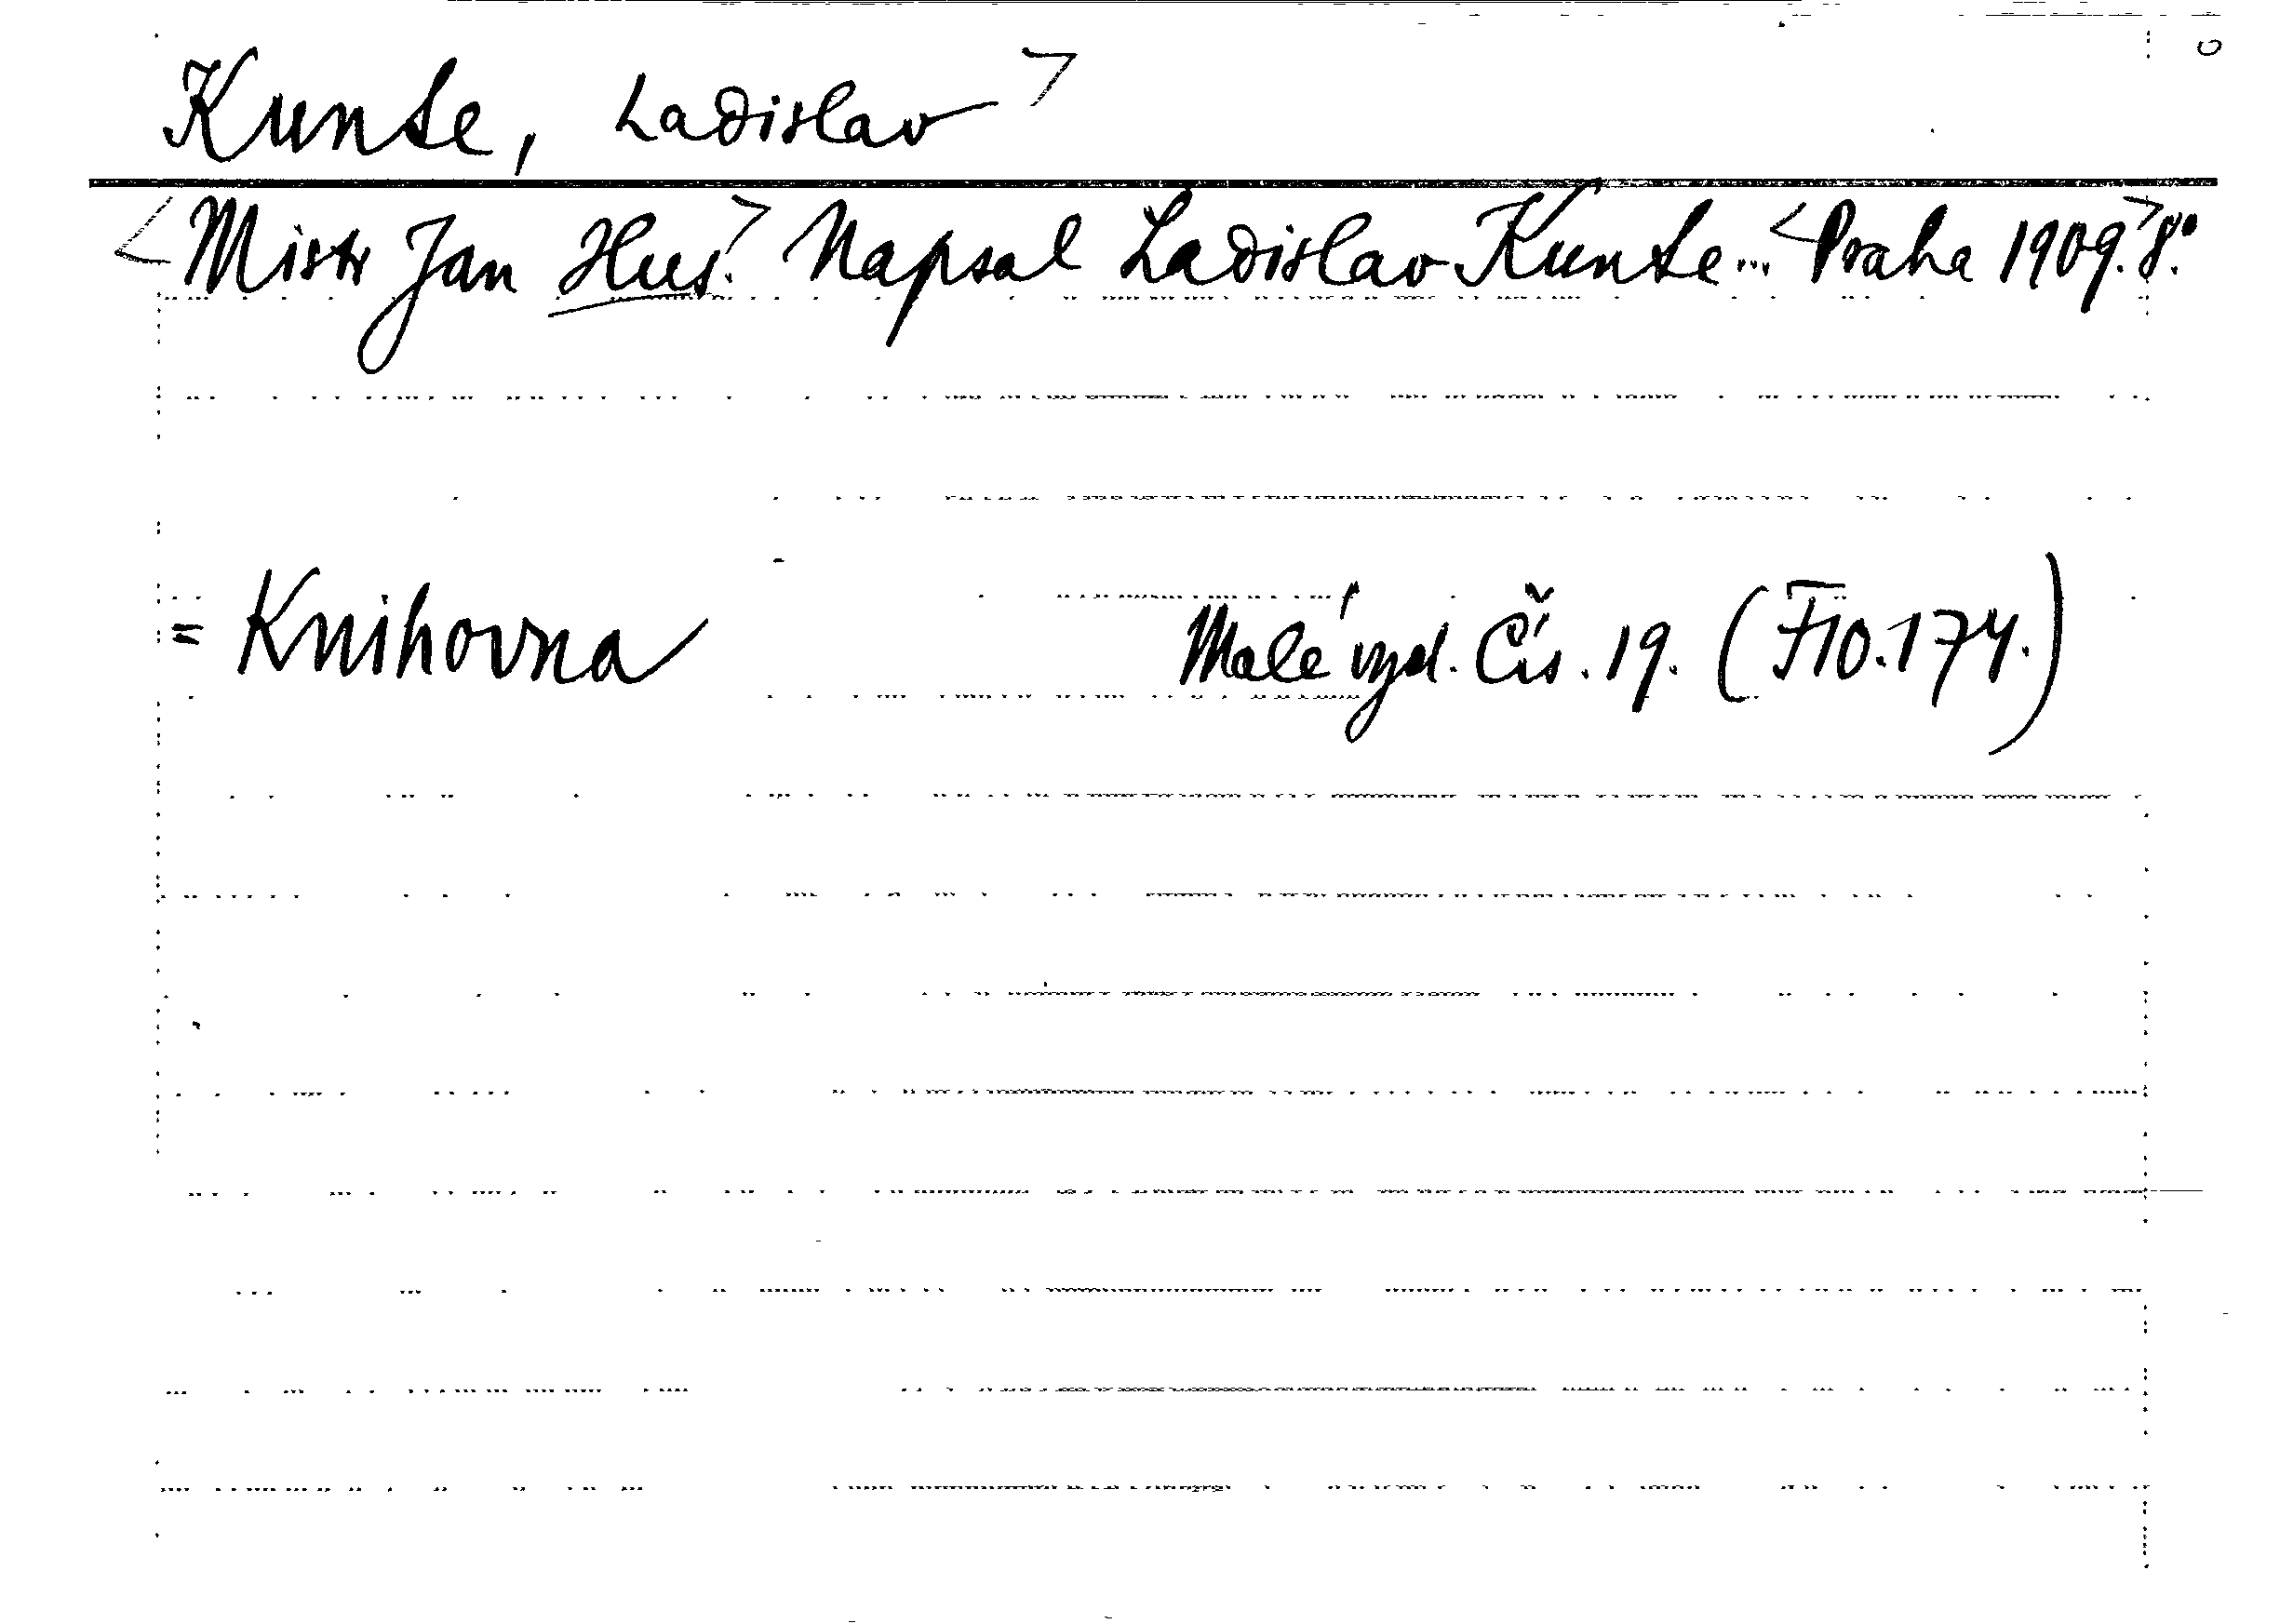 Kunte, Ladislav>
<Mistr Jan Hus.> Napsal Ladislav Kunte... <Praha 1909.> 8°.
= Knihovna Malé vyd. Čís. 19. (F10.174.)